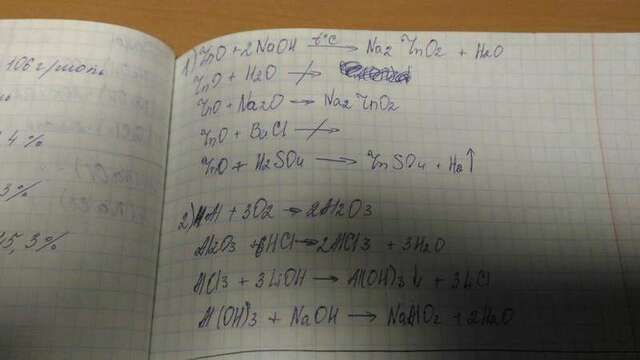 106 г/моль
4%
3%
15,3%
1) ZnO + 2NaOH t°C → Na2ZnO2 + H2O
ZnO + H2O ↛
ZnO + Na2O → Na2ZnO2
ZnO + BaCl ↛
ZnO + H2SO4 → ZnSO4 + H2↑
2) 4Al + 3O2 → 2Al2O3
Al2O3 + 6HCl → 2AlCl3 + 3H2O
AlCl3 + 3LiOH → Al(OH)3↓ + 3LiCl
Al(OH)3 + NaOH → NaAlO2 + 2H2O